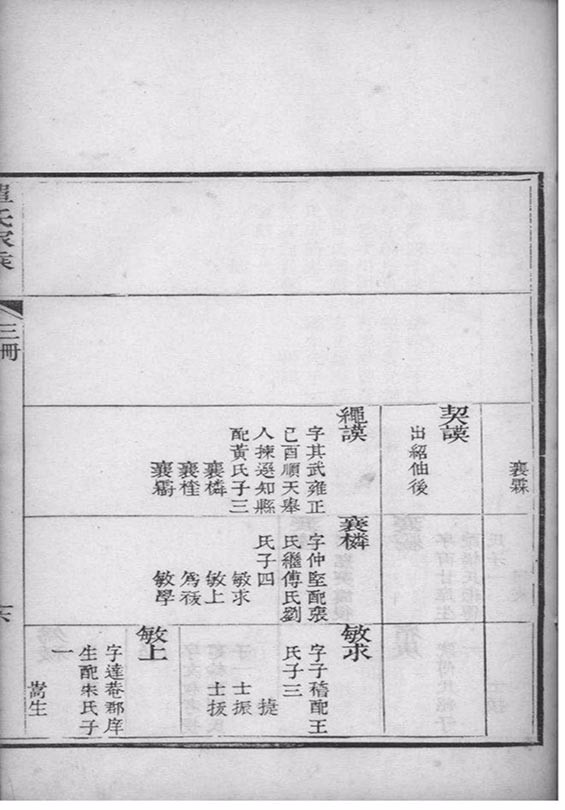 襄霖
契謨
出紹伷後
繩謨
字其武雍正
己酉順天舉
人揀選知縣
配黃氏子三
襄橉
襄桂
襄霨
襄橉
字仲堅配張
氏繼傅氏劉
氏子四
敏求
敏上
敏學
敏求
字子稽配王
氏子三
捷
士振
士掖
敏上
字達菴郡庠
生配朱氏子
一
嵩生
氏家乘
三冊